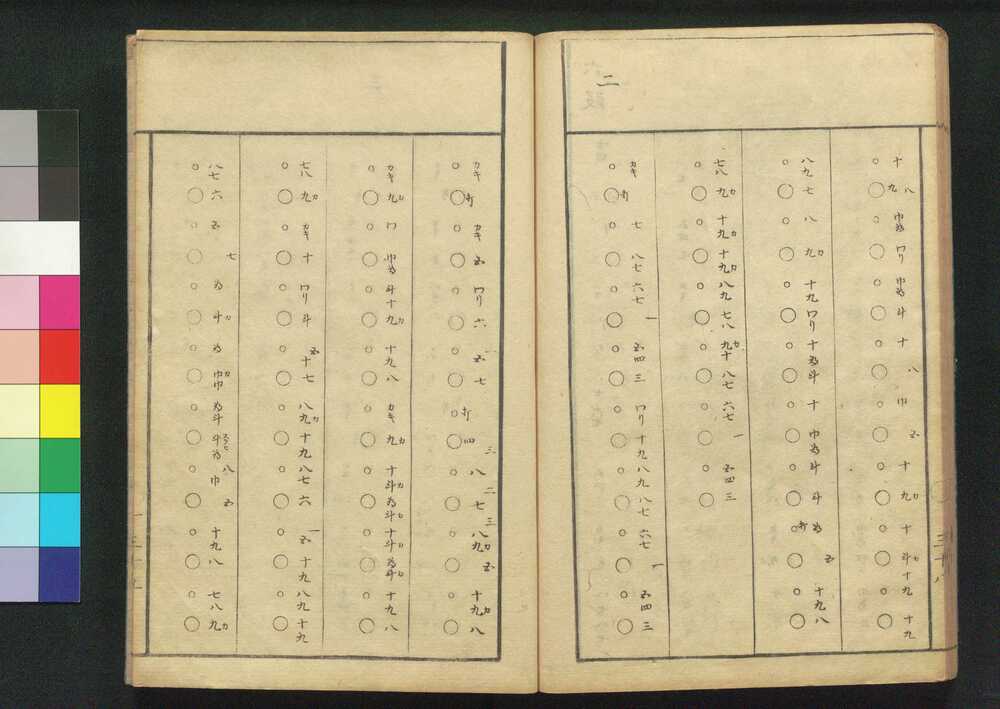 二
十 八 九 巾為 ワリ 巾為 斗 十 八 巾 五 十 九カ 十 斗カ 十九 十九
八九 七 八 九カ 十九 ワリ 十為斗 十 巾為斗 斗 為 五 十九八
七八 九カ 十九カ 十九カ 八九 七八 九カ十 八七 六七 一 五四三
カキ 七 八七 六七 一 五四三 ワリ 十九 八九 八七 六七 一 五四三
三十八
カキ カキ 五 ワリ 六 一 五 七 四 三 八 二 七 三 八九カ 五 十九カ 八
カキ 九カ ワ 巾為 斗十 九カ 十九 八 カキ 九カ 十斗カ 為斗カ 十斗カ 為斗カ 十九 八
七八 九カ カキ 十 ワリ 斗 五 十 七 八九カ 十九 八七 六 一 五 十九 八九 十九
八七 六 五 七 為 斗カ 為 巾カ巾 為斗 斗為 八 巾 五 十九 八 七八 九カ